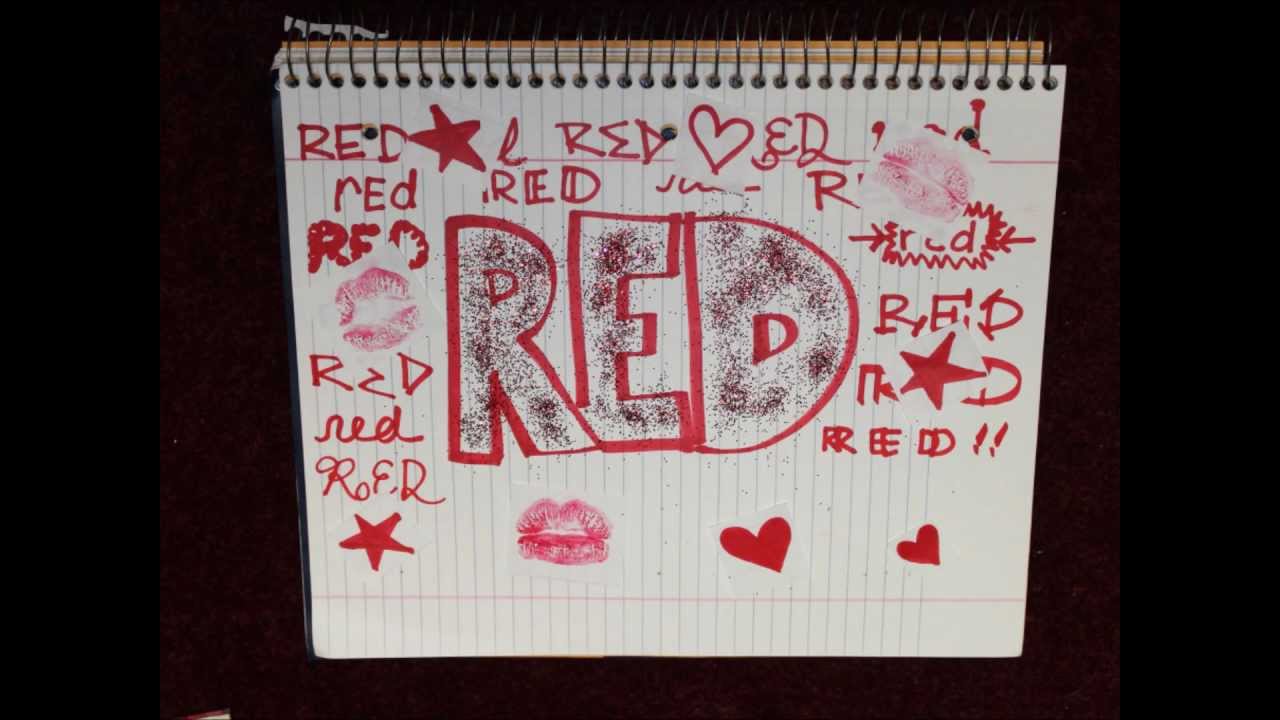 RED RED
rED RED
RED red
RED
RED RED
RED
red REDD!!
RED